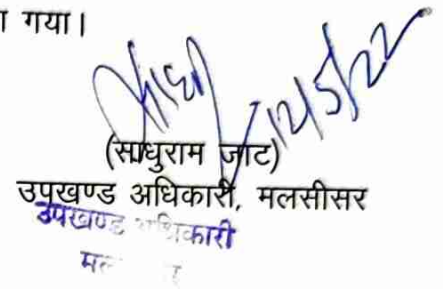 ा गया।
12/5/22
(साधुराम जाट)
उपखण्ड अधिकारी, मलसीसर
उपखण्ड अधिकारी